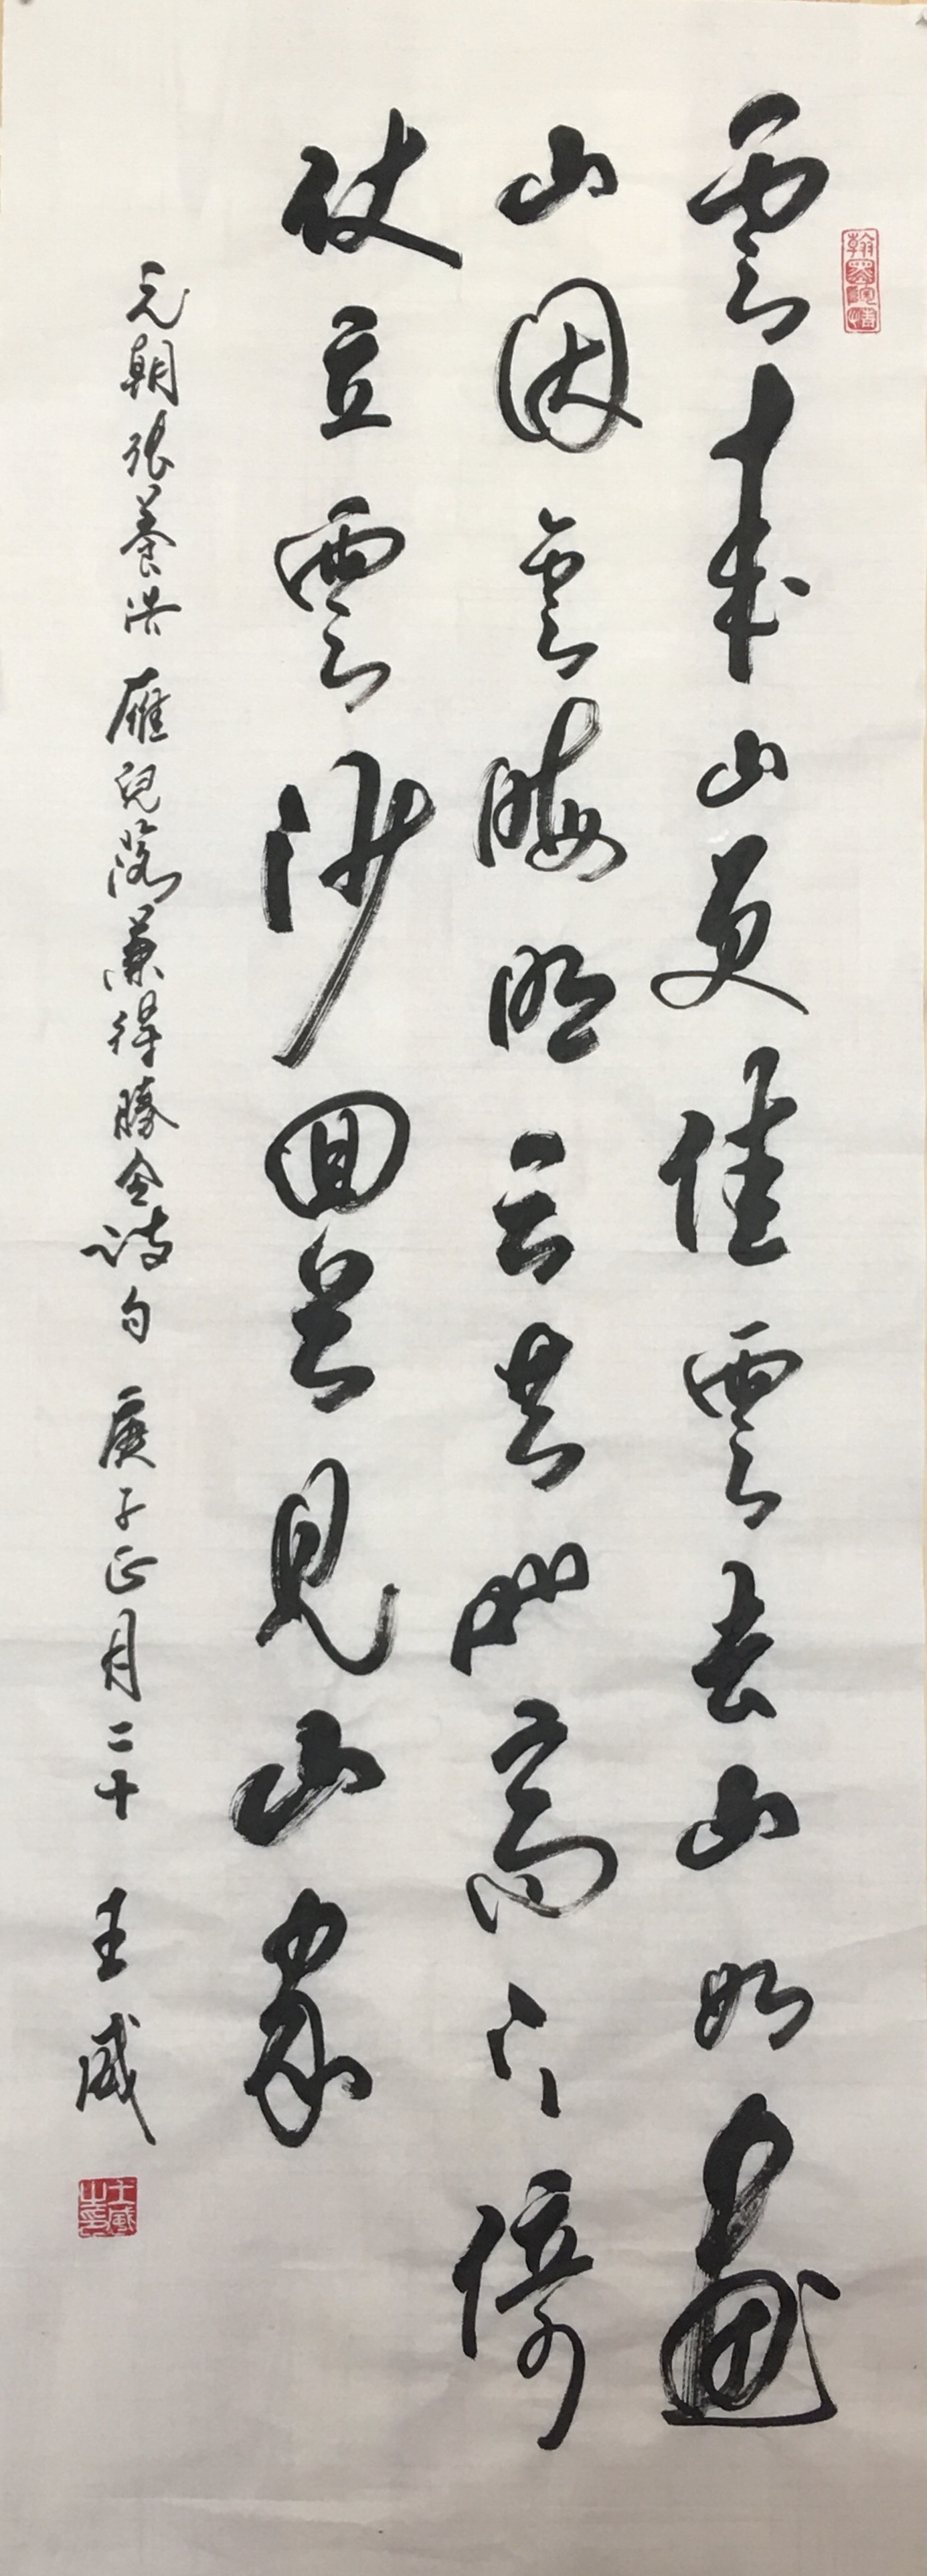 雲來山更佳雲去山如畫
山因雲晦明云共山高下倚
仗立雲沙回首見山家
元朝張養浩雁兒落兼得勝令詩句 庚子正月二十 王威